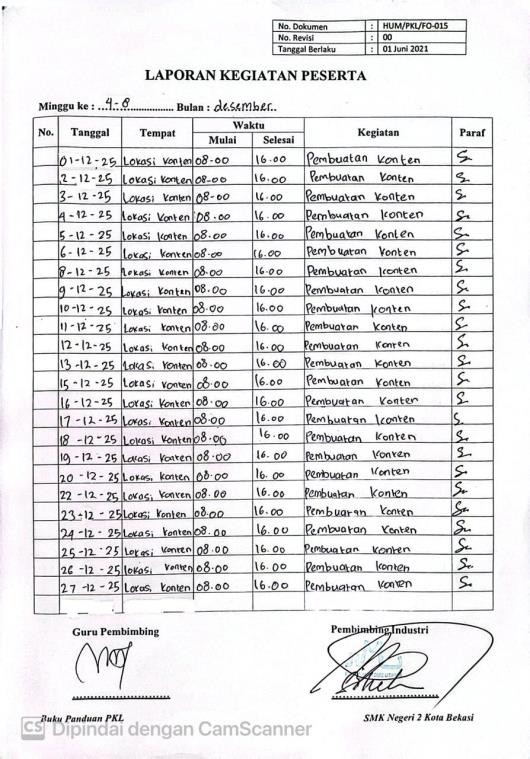 No. Dokumen : HUM/PKL/FO-015
No. Revisi : 00
Tanggal Berlaku : 01 Juni 2021
LAPORAN KEGIATAN PESERTA
Minggu ke : 4-8 Bulan : desember
No. Tanggal Tempat Waktu Kegiatan Paraf
Mulai Selesai
01-12-25 Lokasi konten 08-00 16.00 Pembuatan konten
2-12-25 Lokasi konten 08-00 16.00 Pembuatan konten
3-12-25 Lokasi konten 08-00 16.00 Pembuatan konten
4-12-25 Lokasi konten 08.00 16.00 Pembuatan konten
5-12-25 Lokasi konten 08.00 16.00 Pembuatan konten
6-12-25 Lokasi konten 08.00 16.00 Pembuatan konten
8-12-25 Lokasi konten 08.00 16.00 Pembuatan konten
9-12-25 Lokasi konten 08.00 16.00 Pembuatan konten
10-12-25 Lokasi konten 08.00 16.00 Pembuatan konten
11-12-25 Lokasi konten 08.00 16.00 Pembuatan konten
12-12-25 Lokasi konten 08.00 16.00 Pembuatan konten
13-12-25 Lokasi konten 08.00 16.00 Pembuatan konten
15-12-25 Lokasi konten 08.00 16.00 Pembuatan konten
16-12-25 Lokasi konten 08.00 16.00 Pembuatan konten
17-12-25 Lokasi konten 08.00 16.00 Pembuatan konten
18-12-25 Lokasi konten 08.00 16.00 Pembuatan konten
19-12-25 Lokasi konten 08.00 16.00 Pembuatan konten
20-12-25 Lokasi konten 08.00 16.00 Pembuatan konten
22-12-25 Lokasi konten 08.00 16.00 Pembuatan konten
23-12-25 Lokasi konten 08.00 16.00 Pembuatan konten
24-12-25 Lokasi konten 08.00 16.00 Pembuatan konten
25-12-25 Lokasi konten 08.00 16.00 Pembuatan konten
26-12-25 lokasi konten 08.00 16.00 Pembuatan konten
27-12-25 Lokasi konten 08.00 16.00 Pembuatan konten
Guru Pembimbing Pembimbing Industri
Buku Panduan PKL SMK Negeri 2 Kota Bekasi
CS Dipindai dengan CamScanner